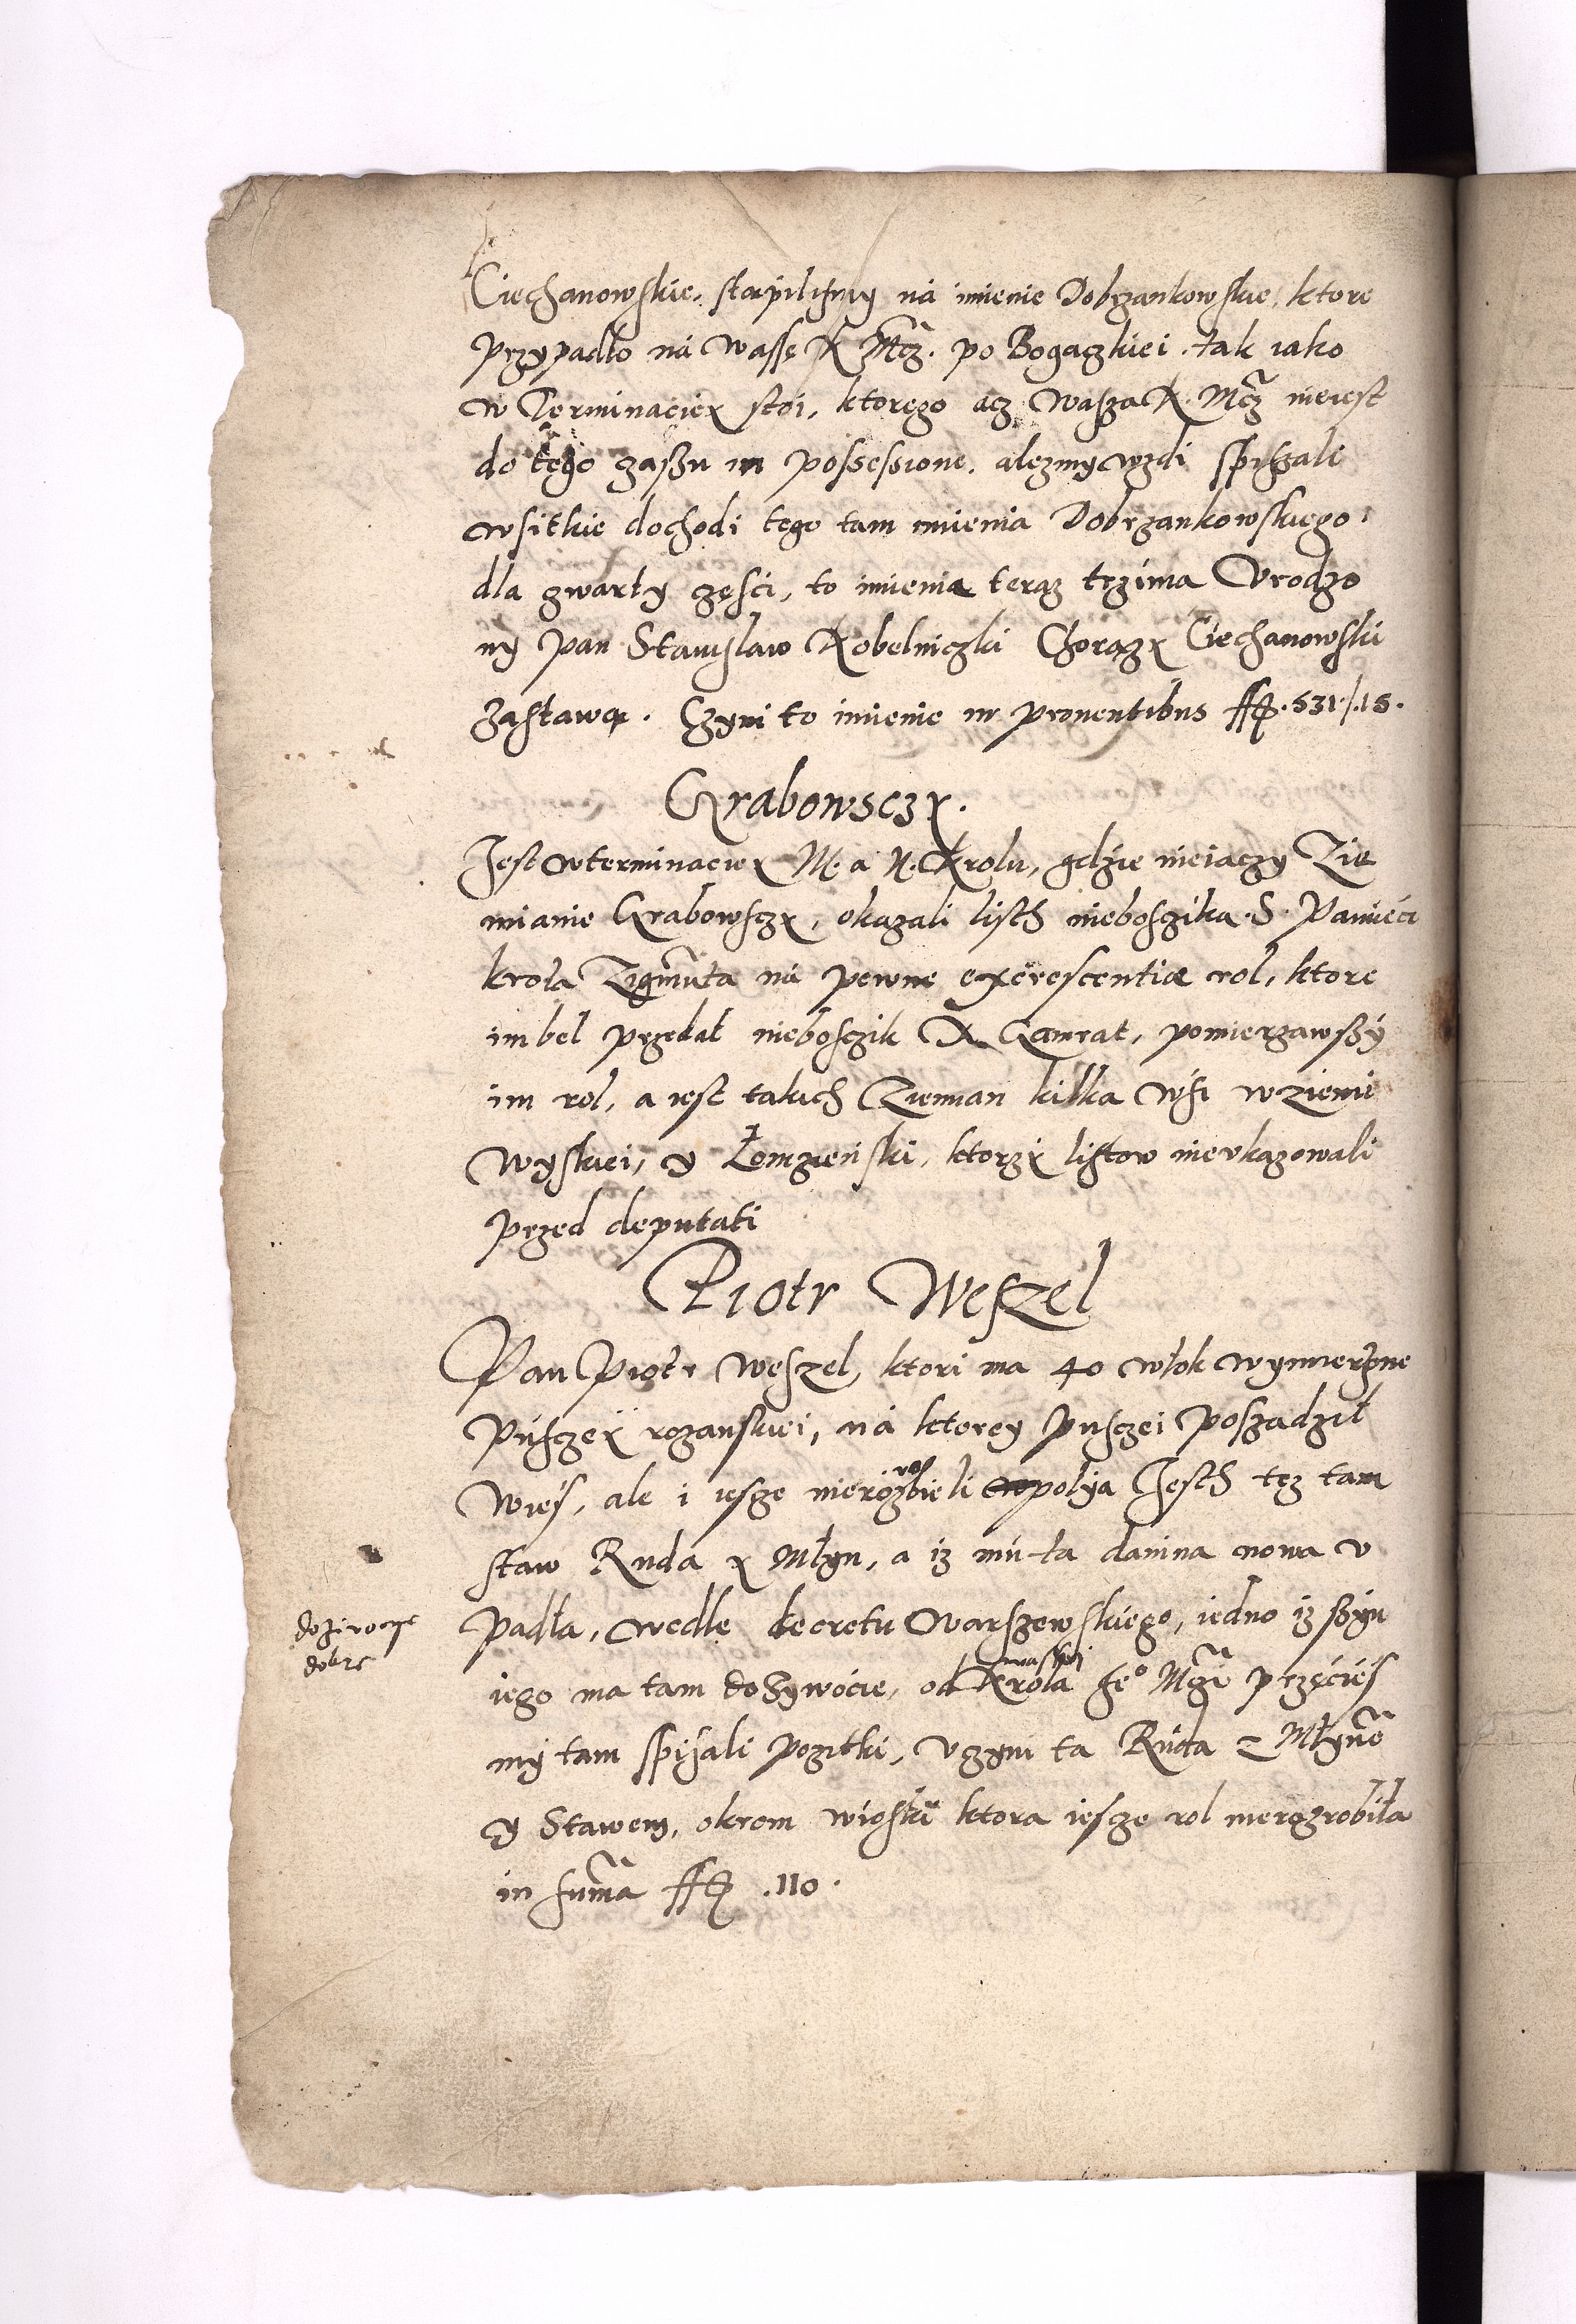 Ciechanowskie, stąpilismy ná imienie Dobrzankowskie, ktore
przypadło ná wassę K Mcz. po Bogaczkiei. tak iako
w Terminaciey stoi, ktorego acz wasza K. Mcz nieiest
do tego czaßu in possessione. alezmy wzdi spiszali
wsitkie dochodi tego tam imienia Dobrzankowskiego,
dla czwarty części, to imienia teraz trzima Vrodzo
ny pan Stanislaw Kobelniczki Chorązy Ciechanowski
zastawą. Czyni to imienie in prouentibus ff .531/.15.
Grabowsczy.
Jest wterminaciey M. a N. Krolu, gdzie nieiaczy Zie
mianie Grabowsczy, okazali listh nieboszika S. Pamieci
krola Zigmūta ná pewne excrescentiae rol, ktore
im bel przedał nieboszik X Gamrat, pomierzawßy
im rol, a iest takich Ziemian kilka wśi wziemi
Wyskiei, y Łomzieński, ktorzy listow nievkazowali
przed deputati
Piotr Weszel
Pan Piotr Weszel, ktori ma 40 włok wymierzone
Pusczey rozanskiei, ná ktorey pusczei poszadził
Wieś, ale i iesze nierozrobieli polya Jesth tez tam
staw Ruda y Młyn, a iz mu ta danina nowa v
padła, wedle decretu Warszewskiego, iedno iz ßyn
dozirocze
dobre
iego ma tam dozywócie, od Krola Jeo Mczi przećieś
my tam spisali pozitki, vczyni ta Ruda z Młynē
y Stawem, okrom wioski ktora iescze rol nierozrobiła
in sumā ff .110.